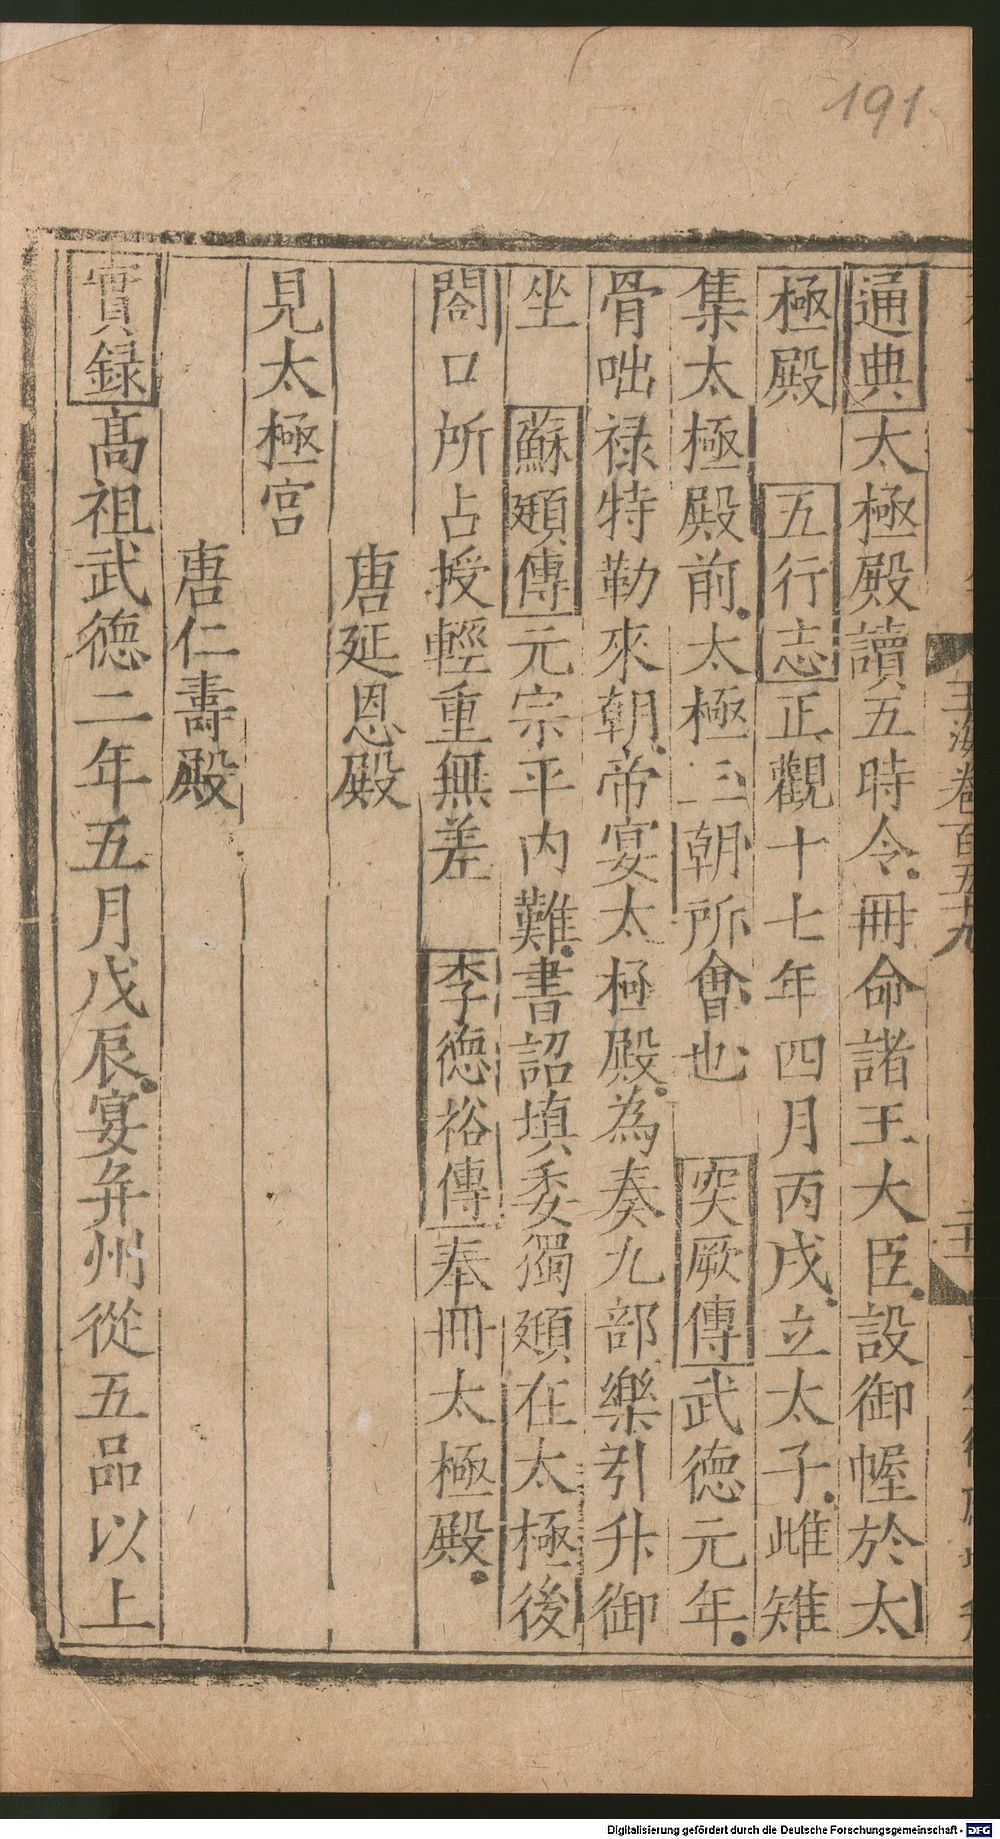 191
玉海卷百五九
通典太極殿讀五時令冊命諸王大臣設御幄於太
極殿 五行志正觀十七年四月丙戌立太子雌雉
集太極殿前太極三朝所會也 突厥傳武德元年
骨咄禄特勒來朝帝宴太極殿為奏九部樂引升御
坐 蘇頲傳元宗平内難書詔填委獨頲在太極後
閤口所占授輕重無差 李德裕傳奉冊太極殿
唐延恩殿
見太極宫
唐仁壽殿
實録髙祖武德二年五月戊辰宴并州從五品以上
Digitalisierung gefördert durch die Deutsche Forschungsgemeinschaft - DFG